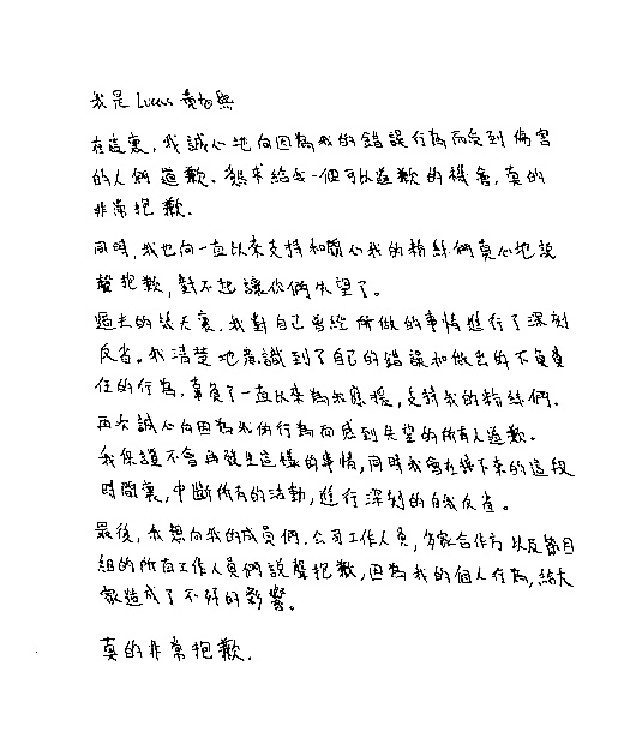 我是 Lucas 黃旭熙
在這裏,我誠心地向因為我的錯誤行為而受到傷害
的人們道歉。懇求給我一個可以道歉的機會,真的
非常抱歉。
同時,我也向一直以來支持和關心我的粉絲們真心地說
聲抱歉,對不起讓你們失望了。
過去的幾天裏,我對自己曾經所做的事情進行了深刻
反省。我清楚地意識到了自己的錯誤和做出的不負責
任的行為,辜負了一直以來為我應援,支持我的粉絲們。
再次誠心向因為我的行為而感到失望的所有人道歉。
我保證不會再發生這樣的事情,同時我會在接下來的這段
時間裏,中斷所有的活動,進行深刻的自我反省。
最後,我想向我的成員們,公司工作人員,多家合作方以及節目
組的所有工作人員們說聲抱歉,因為我的個人行為,給大
家造成了不好的影響。
真的非常抱歉.